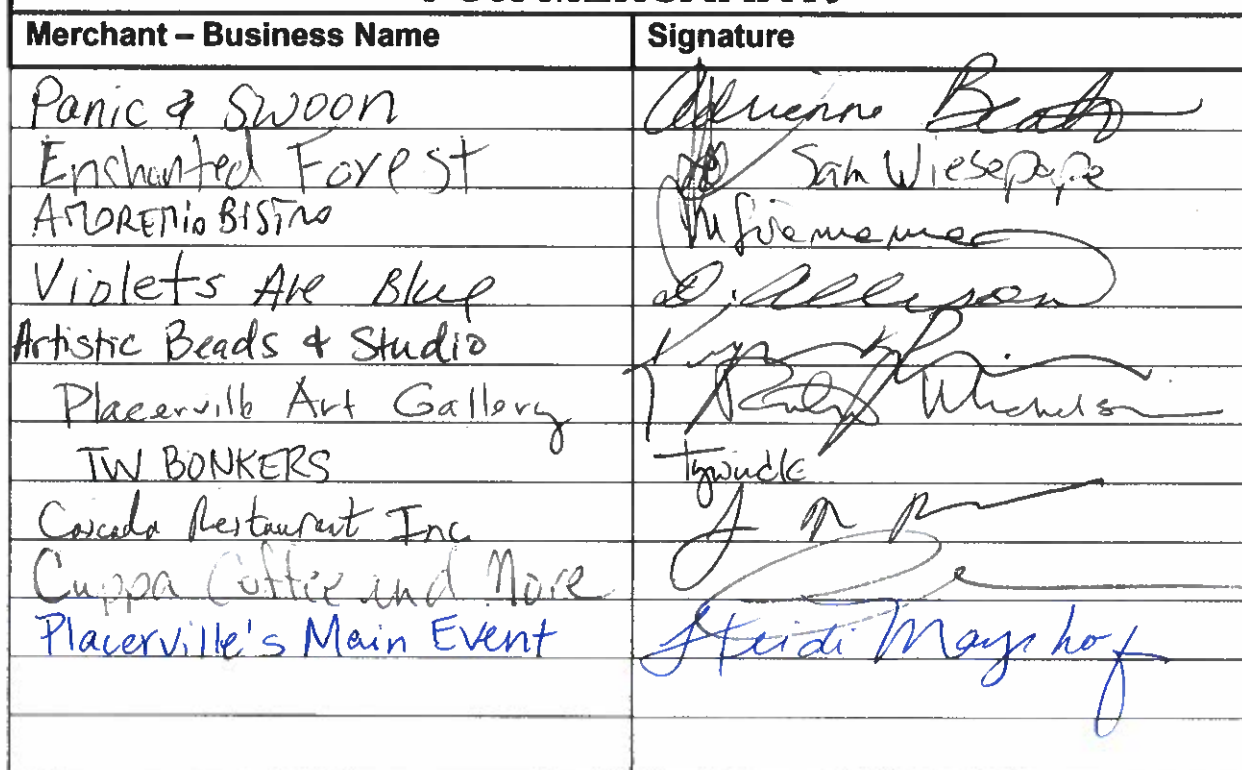 Merchant – Business Name Signature
Panic & Swoon Adrienne
Enchanted Forest Sam Wiesepape
AMOREMIO BISTRO
Violets Are Blue D. Allison
Artistic Beads & Studio
Placerville Art Gallery
TW BONKERS
Cascada Restaurant Inc
Cuppa Coffee and More
Placerville's Main Event Heidi Mayrhof